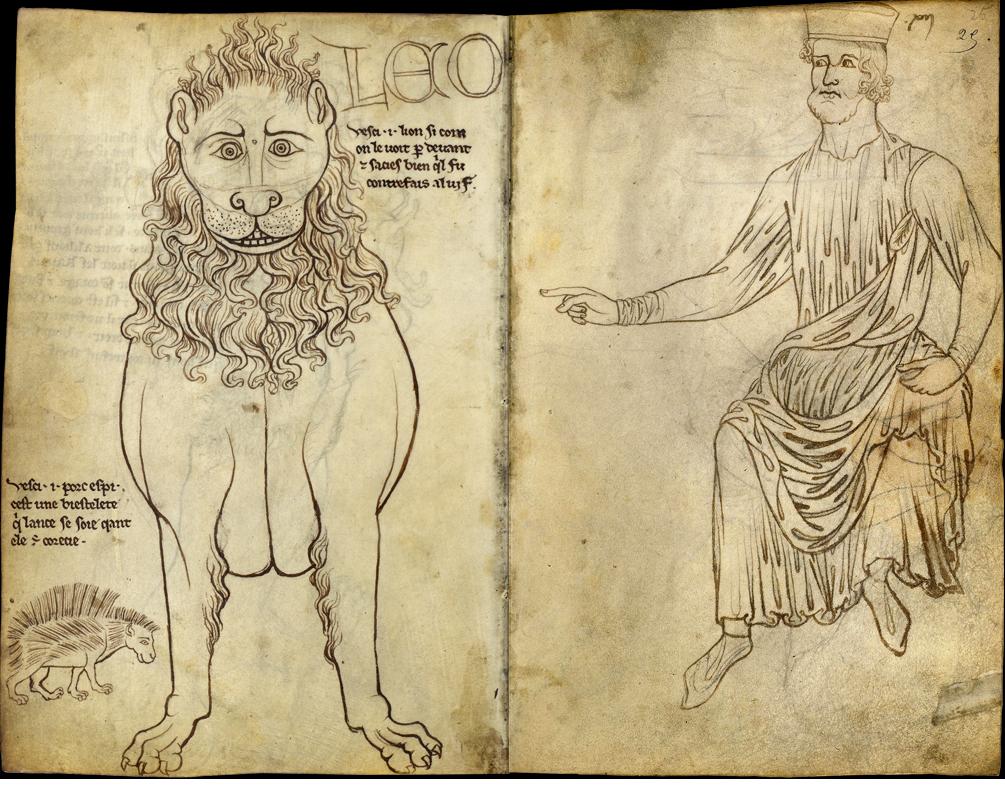 LEO
Vesci · i · lion si com
on le voit p devant
⁊ sacies bien ql fu
contrefais al vif.
Vesci · i · porc espi ·
cest une biestelete
q lance se soie qant
ele ÷ corecie ·
25